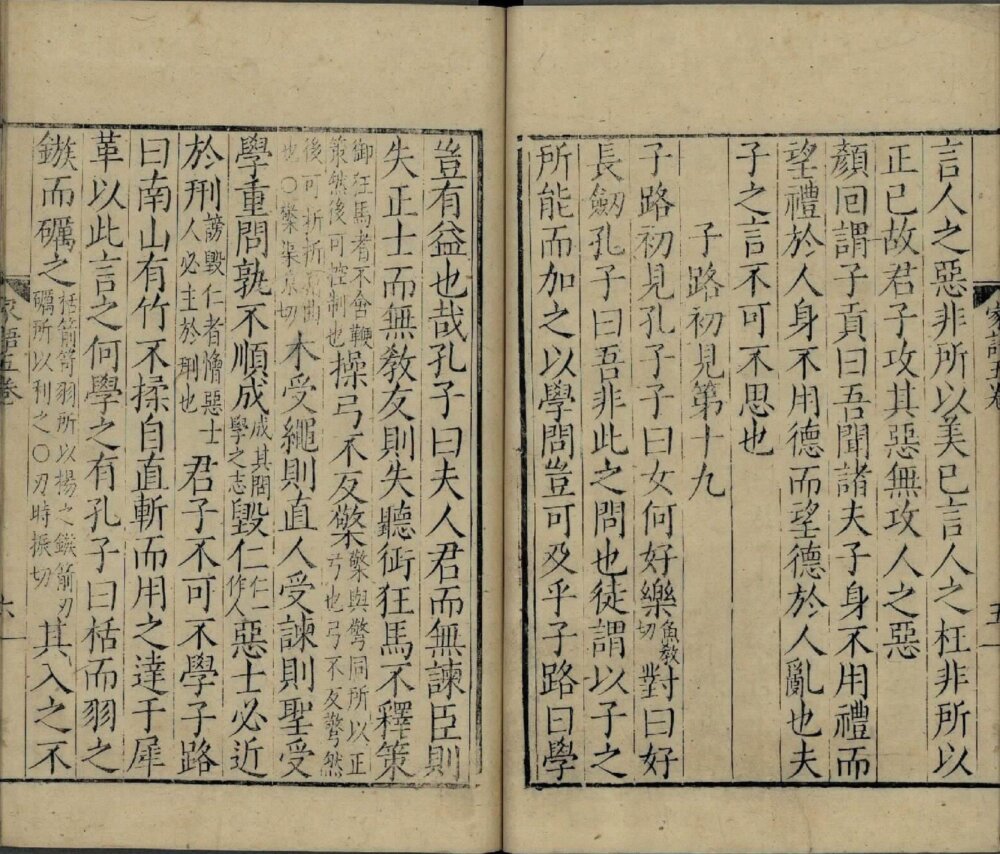 言人之惡非所以美已言人之枉非所以
正已故君子攻其惡無攻人之惡
顔囘謂子貢曰吾聞諸夫子身不用禮而
望禮於人身不用德而望德於人亂也夫
子之言不可不思也
子路初見第十九
子路初見孔子子曰女何好樂魚敎切對曰好
長劔孔子曰吾非此之問也徒謂以子之
所能而加之以學問豈可及乎子路曰學
豈有益也哉孔子曰夫人君而無諫臣則
失正士而無敎友則失聽御狂馬不釋策
御狂馬者不舍鞭策然後可控制也操弓不反檠檠與檠同所以正弓也弓不反檠然
後可折所曲也○檠渠京切木受繩則直人受諫則聖受
學重問孰不順成成其問學之志毀仁仁一作人惡士必近
於刑謗毀仁者憎惡士人必主於刑也君子不可不學子路
曰南山有竹不揉自直斬而用之達于犀
革以此言之何學之有孔子曰栝而羽之
鏃而礪之栝箭筈羽所以揚之鏃箭刃礪所以利之○刃時振切其入之不
家語五卷
五
家語五卷
六